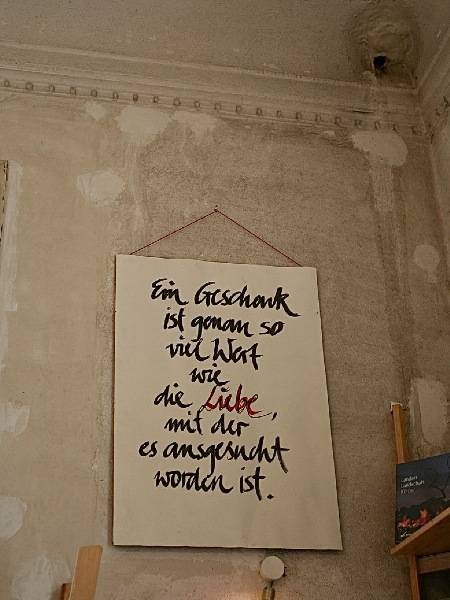 Ein Geschenk
ist genau so
viel Wert
wie
die Liebe,
mit der
es ausgesucht
worden ist.
Landschaft